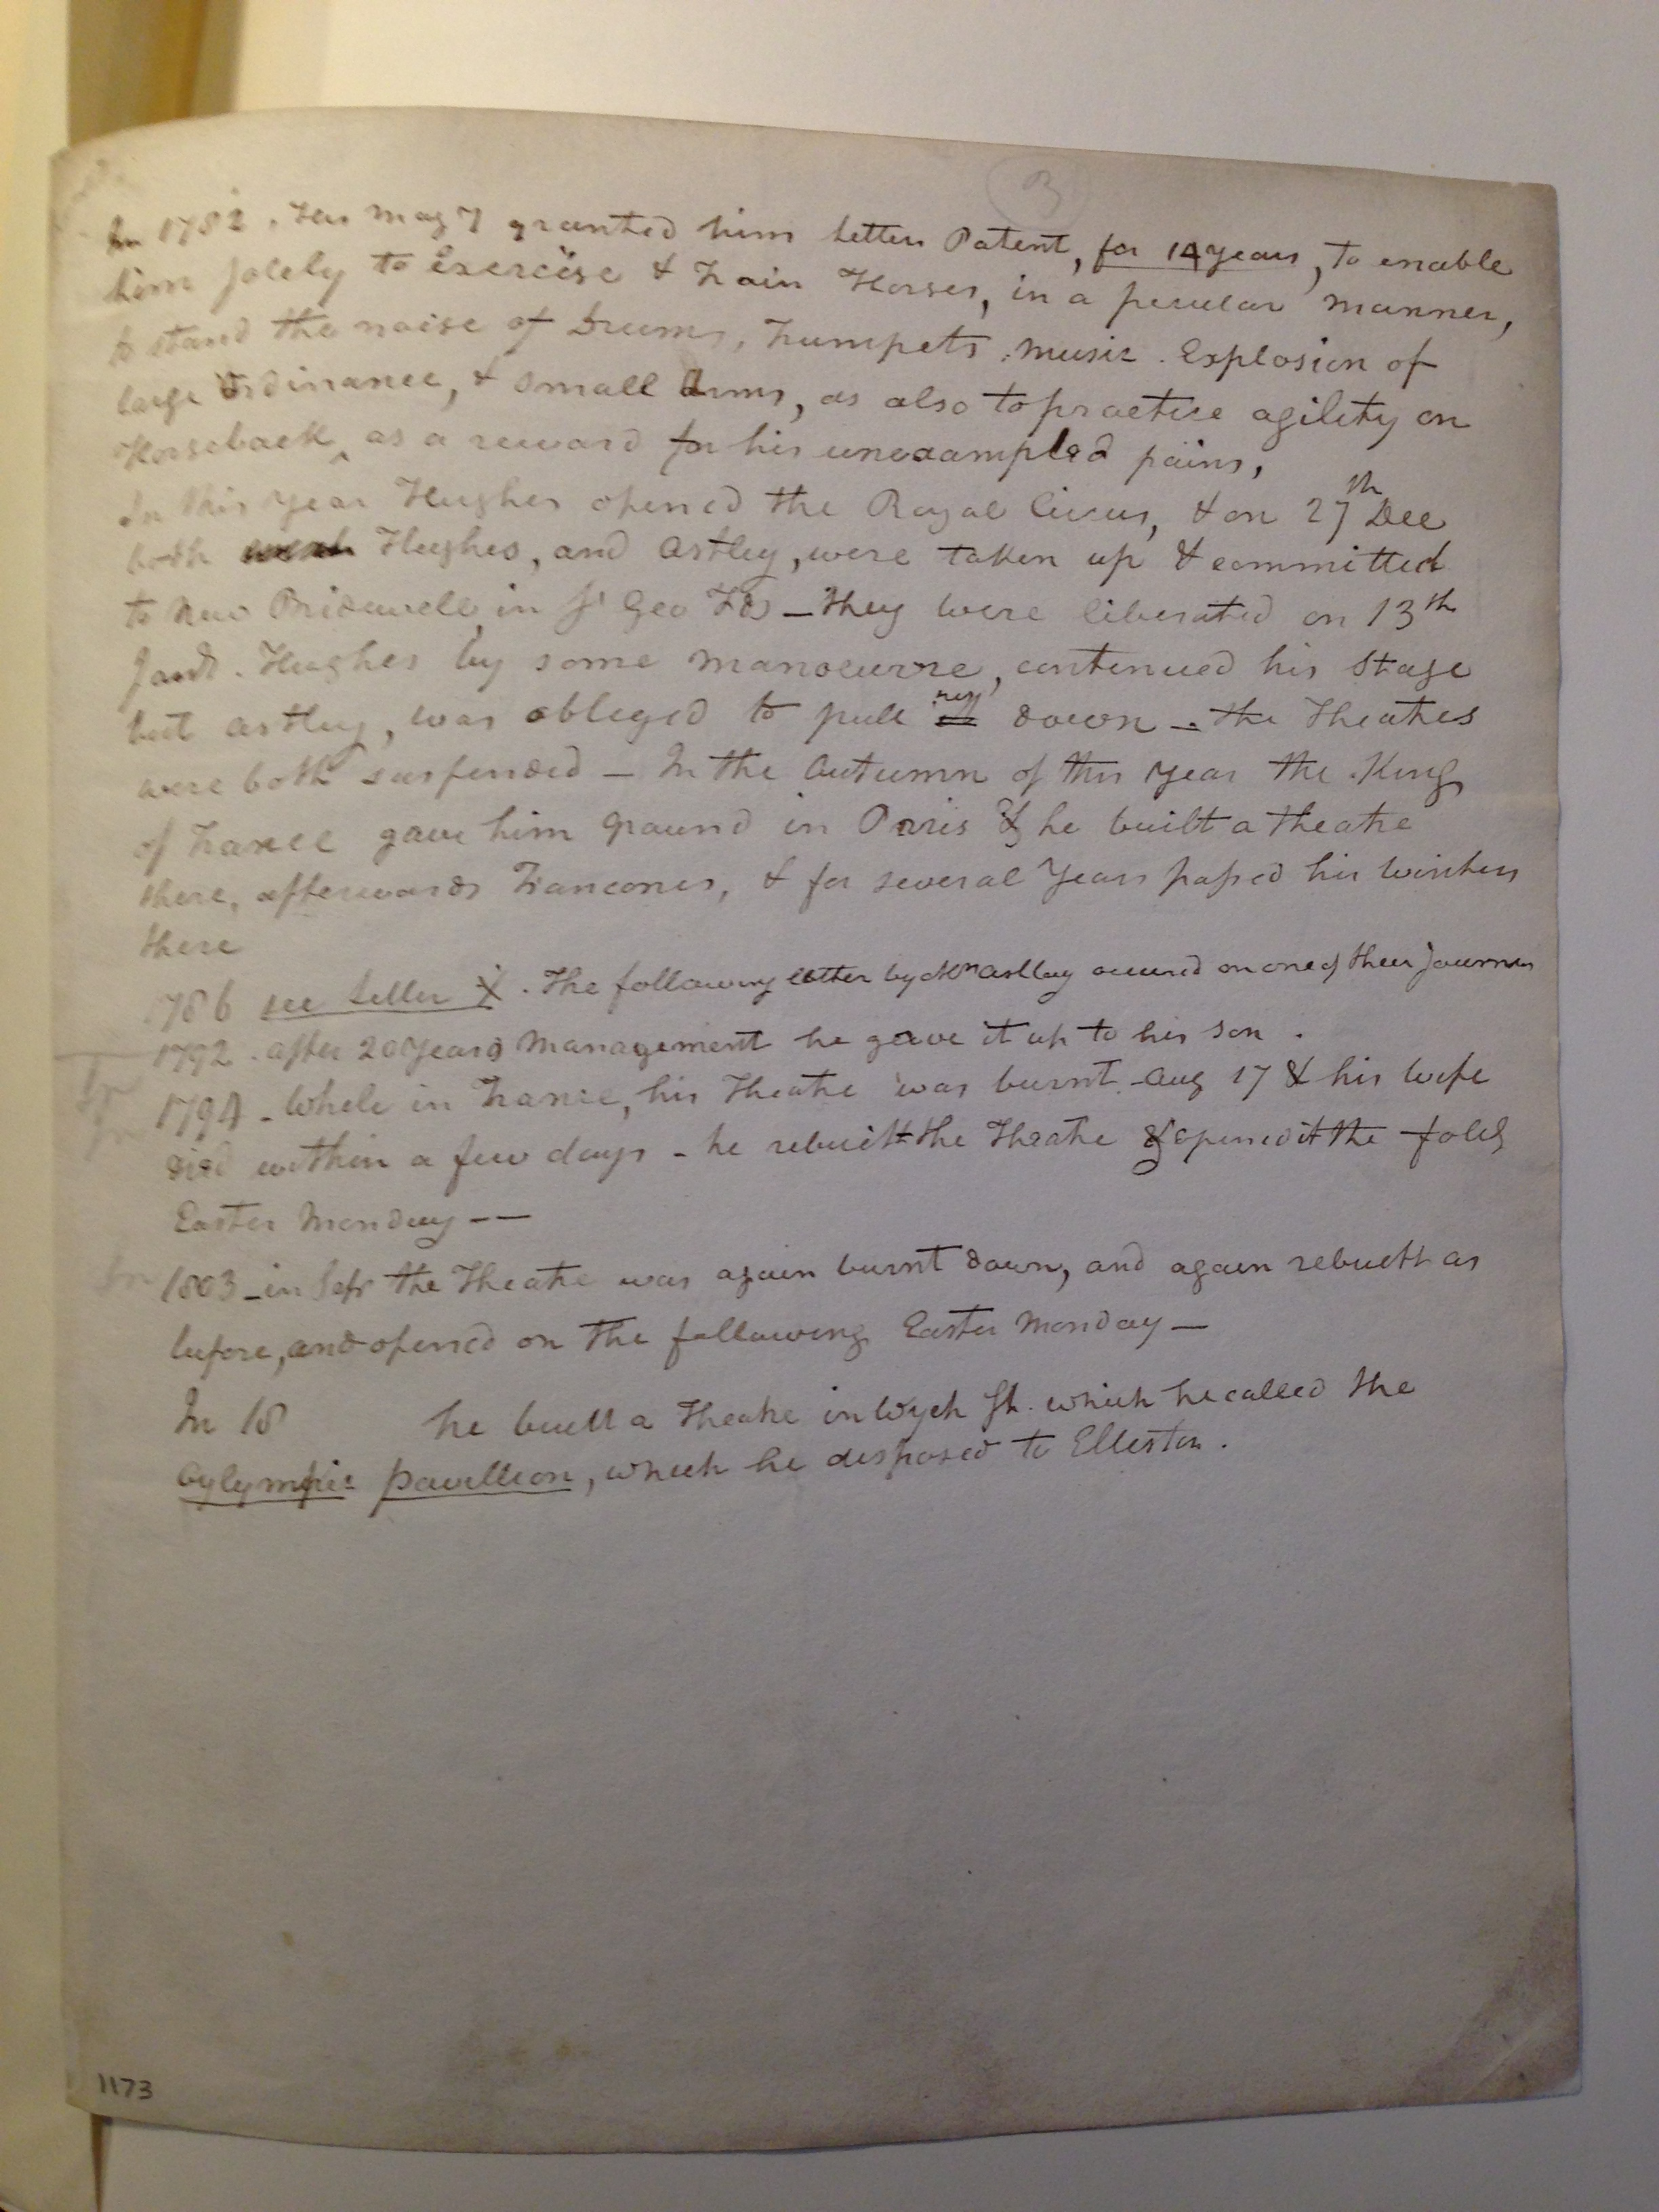 3
In 1782. His Majy granted him letters Patent, for 14 years, to enable
him solely to Exercise & Train Horses, in a peculiar manner,
to stand the noise of Drums, Trumpets, Music. Explosion of
large Ordinance, & small Arms, as also to practice agility on
Horseback ^ as a reward for his unexampled pains,
In this year Hughes opened the Royal Circus, & on 27th Dec
both Hughes, and Astley, were taken up & committed
to New Bridewell, in St Geo Fds — They were liberated on 13th
Jany. Hughes by some manoeuvre, continued his Stage
but Astley, was obliged to pull down — the Theatres
were both suspended — In the Autumn of this year the King
of France gave him ground in Paris & he built a theatre
there, afterwards Francones, & for several Years passed his winters
there
1786 see Letter X. The following letter by Mrs Astley occured on one of their Journies
1792. after 20 Years Management he gave it up to his son.
1794 — While in France, his Theatre was burnt Aug 17 & his Wife
died within a few days — he rebuilt the Theatre & opened it the folg
Easter Monday — —
In 1803 — in Sepr the Theatre was again burnt down, and again rebuilt as
before, and opened on the following Easter Monday —
In 18 he built a Theatre in Wych St. which he called the
Oylympic Pavillion, which he disposed to Elliston.
1173